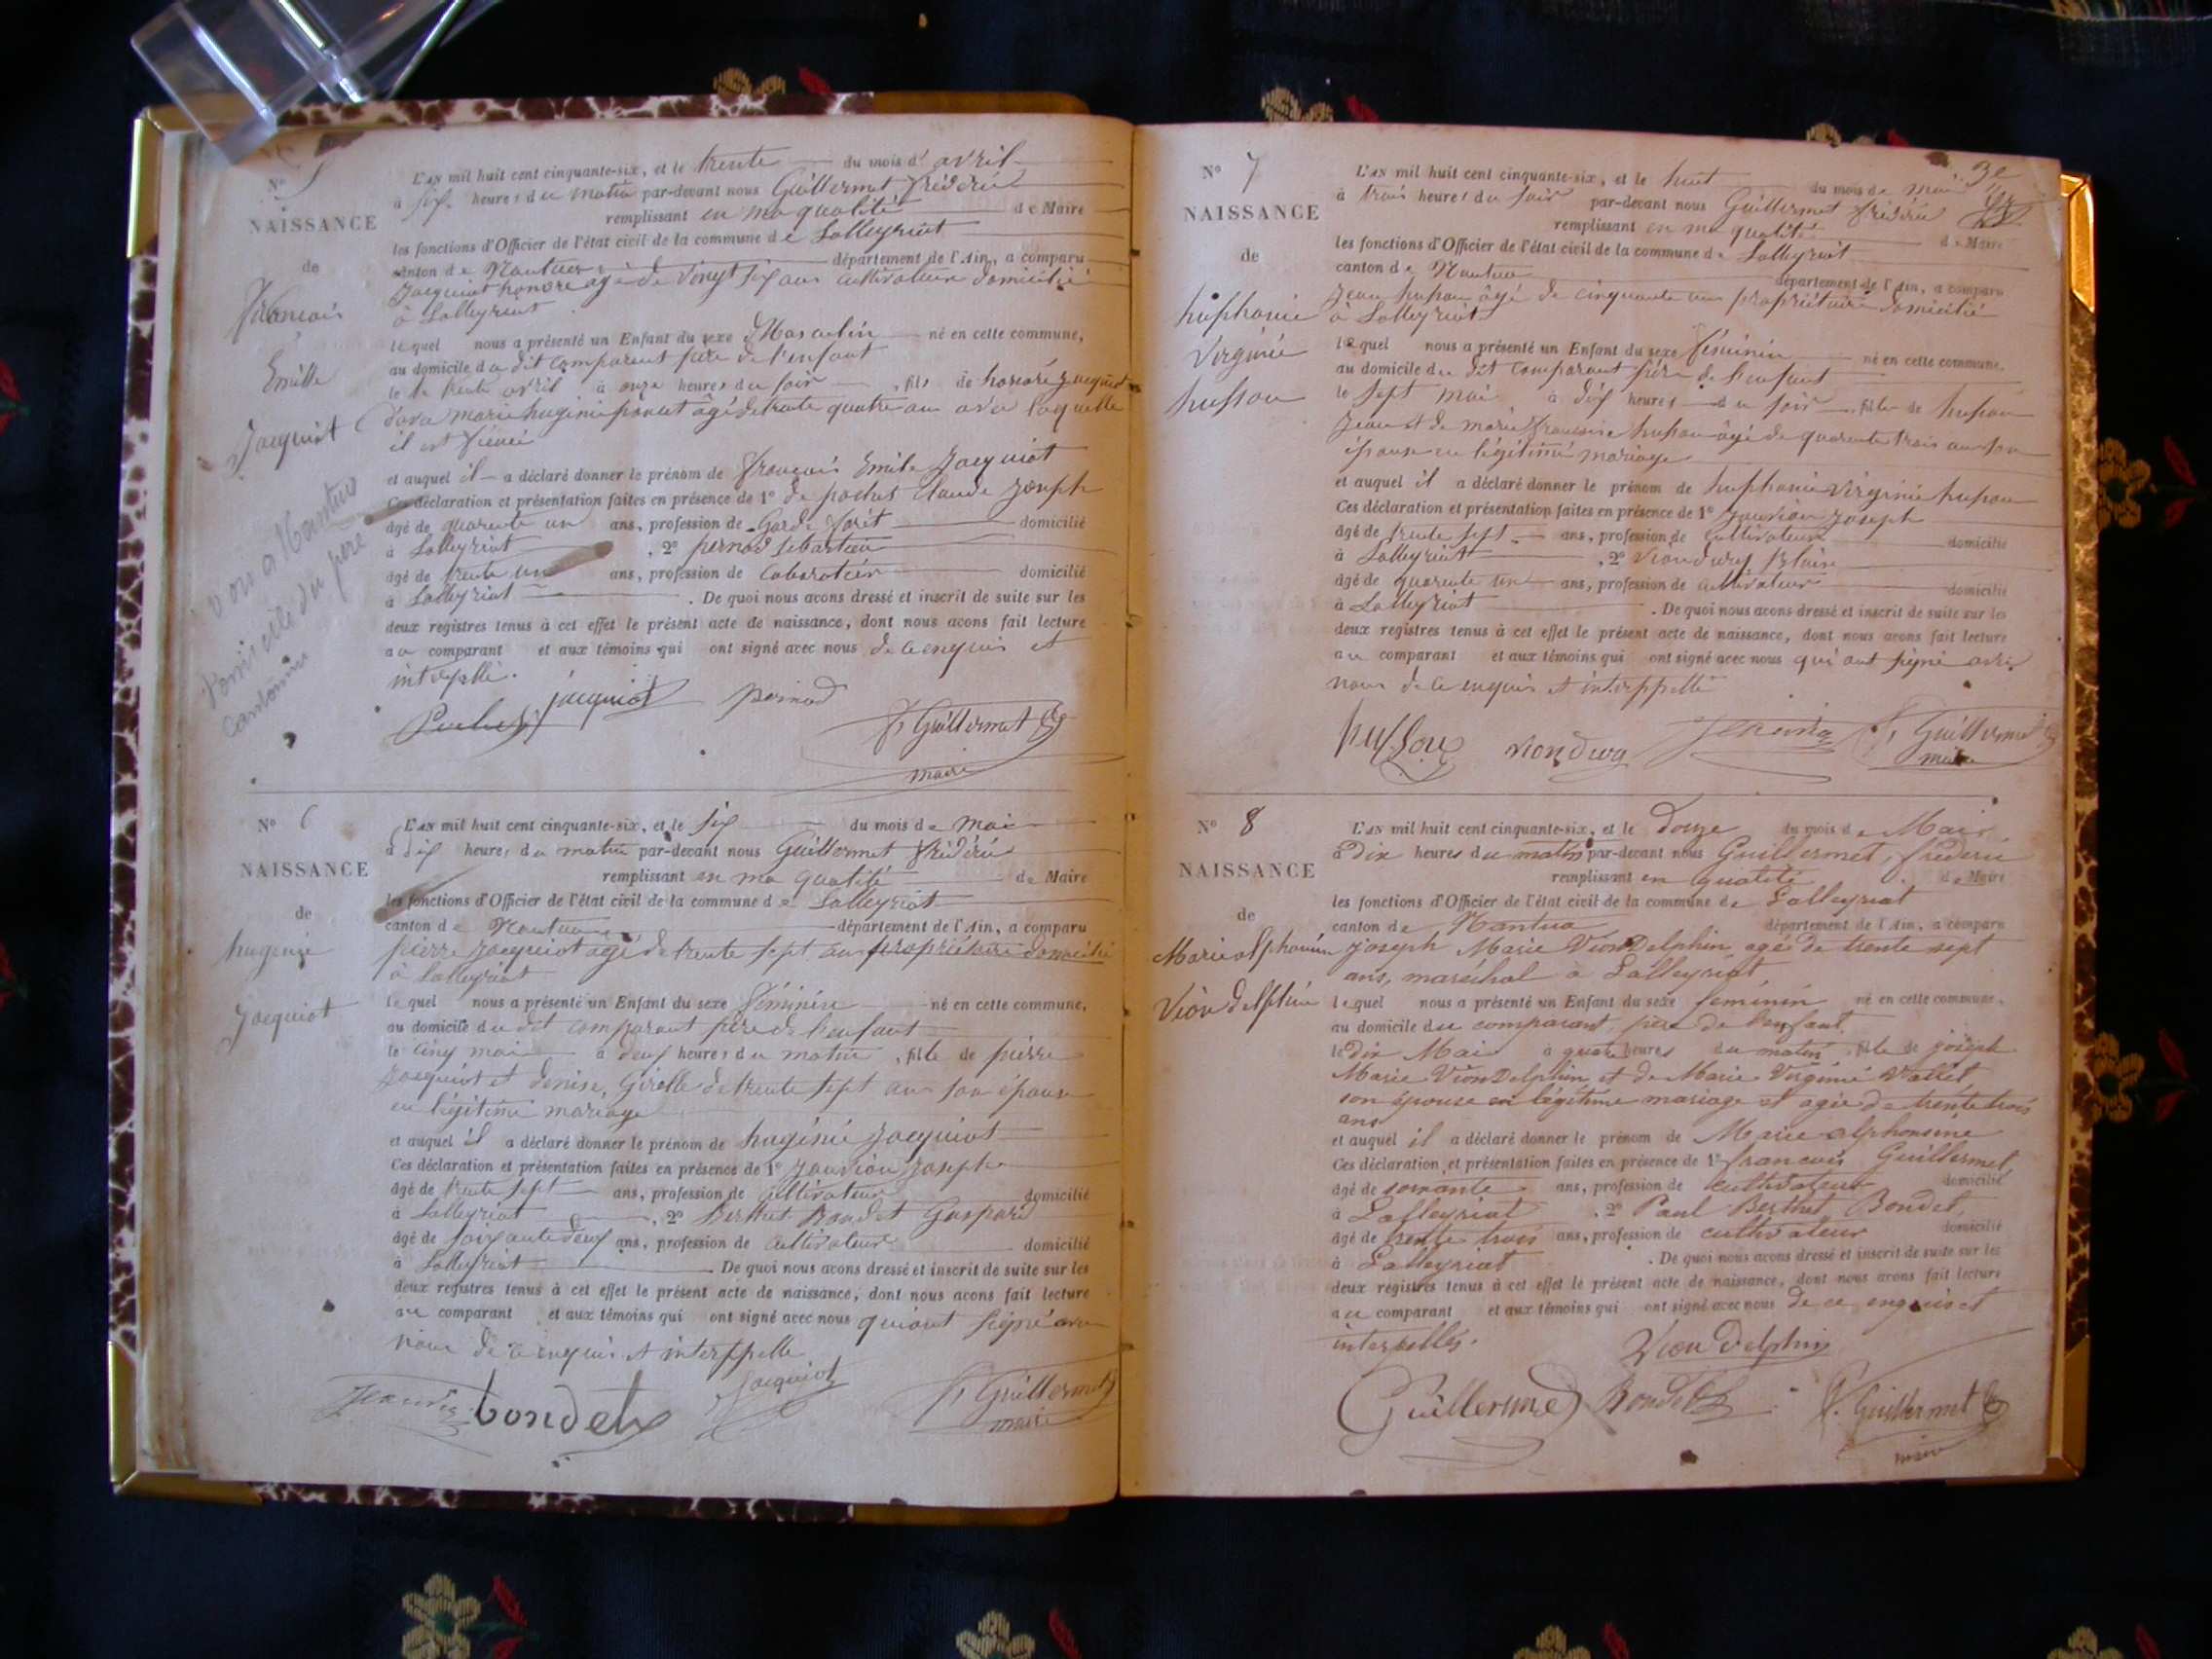 Nº 5
NAISSANCE
de
François
Emille
Jacquiot
L'AN mil huit cent cinquante-six, et le trente du mois d'avril
à six heures du matin par-devant nous Guillermet frédéric
remplissant en ma qualité de Maire
les fonctions d'Officier de l'état civil de la commune de Lalleyriat
canton de Nantua département de l'Ain, a comparu
Jacquiot honoré agé de vingt six ans cultivateur domicilié
à Lalleyriat
lequel nous a présenté un Enfant du sexe Masculin né en cette commune,
au domicile du dit comparant père de l'enfant
le trente avril à onze heures du soir, fils de honoré jacquiot
marie hugenie poncet âgé de trente quatre ans avec laquelle
il est
et auquel il a déclaré donner le prénom de françois Emile Jacquiot
Ces déclaration et présentation faites en présence de 1º de pochet Claude Joseph
âgé de quarente un ans, profession de Garde forêt domicilié
à Lalleyriat, 2º pernod sébastien
âgé de trente un ans, profession de Cabaretier domicilié
à Lalleyriat. De quoi nous avons dressé et inscrit de suite sur les
deux registres tenus à cet effet le présent acte de naissance, dont nous avons fait lecture
au comparant et aux témoins qui ont signé avec nous de ce enquis et
interpellé.
jacquiot pernod
f. Guillermet
maire
a Nantua
domicile du père
Nº 6
NAISSANCE
de
hugenie
Jacquiot
L'AN mil huit cent cinquante-six, et le six du mois de mai
à dix heures du matin par-devant nous Guillermet frédéric
remplissant en ma qualité de Maire
les fonctions d'Officier de l'état civil de la commune de Lalleyriat
canton de Nantua département de l'Ain, a comparu
pierre Jacquiot agé de trente sept ans propriétaire domicilié
à Lalleyriat
lequel nous a présenté un Enfant du sexe féminin né en cette commune,
au domicile du dit comparant père de l'enfant
le cinq mai à deux heures du matin, fille de pierre
Jacquiot et denise Girelle de trente sept ans son épouse
en légitime mariage
et auquel il a déclaré donner le prénom de hugénie Jacquiot
Ces déclaration et présentation faites en présence de 1º Joseph
âgé de trente sept ans, profession de cultivateur domicilié
à Lalleyriat, 2º Berthet Bondet Gaspard
âgé de soixante deux ans, profession de cultivateur domicilié
à Lalleyriat. De quoi nous avons dressé et inscrit de suite sur les
deux registres tenus à cet effet le présent acte de naissance, dont nous avons fait lecture
au comparant et aux témoins qui ont signé avec nous qui ont signé avec
nous de ce enquis et interppellé
bondet Jacquiot f. Guillermet
maire
Nº 7
NAISSANCE
de
huphonie
Virginie
husson
L'AN mil huit cent cinquante-six, et le huit du mois de mai
à trois heures du soir par-devant nous Guillermet frédéric
remplissant en ma qualité de Maire
les fonctions d'Officier de l'état civil de la commune de Lalleyriat
canton de Nantua département de l'Ain, a comparu
Jean husson âgé de cinquante ans propriétaire domicilié
à Lalleyriat
lequel nous a présenté un Enfant du sexe féminin né en cette commune,
au domicile du dit comparant père de l'enfant
le sept mai à dix heures du soir, fille de husson
Jean et de marie françoise husson âgé de quarente trois ans son
épouse en légitime mariage
et auquel il a déclaré donner le prénom de huphonie Virginie husson
Ces déclaration et présentation faites en présence de 1º Joseph
âgé de trente sept ans, profession de cultivateur domicilié
à Lalleyriat, 2º Viondury Blaise
âgé de quarente un ans, profession de cultivateur domicilié
à Lalleyriat. De quoi nous avons dressé et inscrit de suite sur les
deux registres tenus à cet effet le présent acte de naissance, dont nous avons fait lecture
au comparant et aux témoins qui ont signé avec nous qui ont signé avec
nous de ce enquis et interppellé
husson f. Guillermet
maire
Nº 8
NAISSANCE
de
Marie alphonsine
Vion delphin
L'AN mil huit cent cinquante-six, et le Douze du mois de Mai
à Dix heures du matin par-devant nous Guillermet, frédéric
remplissant en qualité de Maire
les fonctions d'Officier de l'état civil de la commune de Lalleyriat
canton de Nantua département de l'Ain, a comparu
Joseph Marie Vion Delphin, agé de trente sept
ans, maréchal à Lalleyriat
lequel nous a présenté un Enfant du sexe féminin né en cette commune,
au domicile du comparant, père de l'enfant,
le dix Mai à quatre heures du matin, fille de joseph
Marie Vion Delphin et de Marie Virginie Vallet
son épouse en légitime mariage et agée de trente trois
ans
et auquel il a déclaré donner le prénom de Marie alphonsine
Ces déclaration et présentation faites en présence de 1º françois Guillermet
âgé de soixante ans, profession de cultivateur domicilié
à Lalleyriat, 2º Paul Berthet Bondet,
âgé de trente trois ans, profession de cultivateur domicilié
à Lalleyriat. De quoi nous avons dressé et inscrit de suite sur les
deux registres tenus à cet effet le présent acte de naissance, dont nous avons fait lecture
au comparant et aux témoins qui ont signé avec nous de ce enquis et
interpellés.
Vion Delphin
Guillermet Bondet f. Guillermet
maire